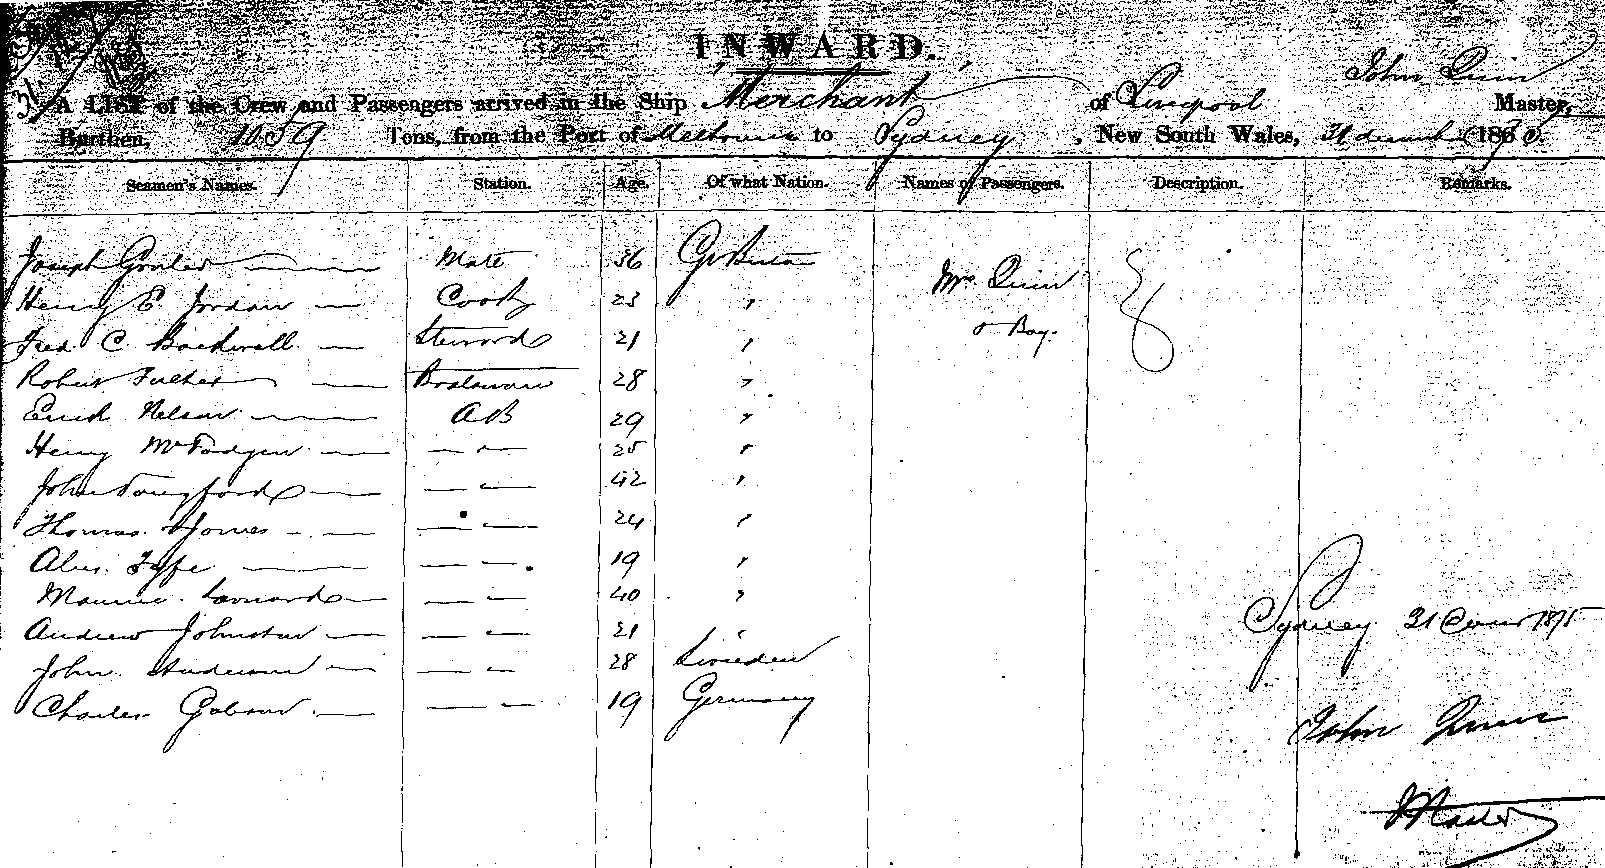 INWARD.
A LIST of the Crew and Passengers arrived in the Ship "Merchant" of Liverpool John Quin Master,
Burthen, 1059 Tons, from the Port of Melbourne to Sydney, New South Wales, 31 1870
Seamen's Names. Station. Age. Of what Nation. Names of Passengers. Description. Remarks.
Joseph Mate 36 Gt Britain Mrs Quin
Henry E. Jordan Cook 23 "
Fred C. Steward 21 " & Boy.
Robert Boatswain 28 "
Nelson A B 29 "
Henry — — 25 "
John — — 42 "
Thomas Jones — — 24 "
Alex. Fyfe — — 19 "
Maurice Leonard — — 40 "
Andrew Johnston — — 21 "
John Anderson — — 28 Sweden
Charles — — 19 Germany
Sydney 31 1875
John Quin
Master